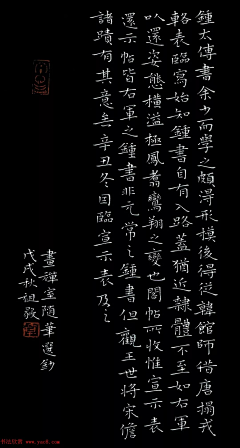 鍾太傅書余少而學之頗得形模後得從韓館師借唐搨戎
輅表臨寫始知鍾書自有入路蓋猶近隸體不至如右軍
以還姿態橫溢極鳳翥鸞翔之變也閣帖所收惟宣示表
還示帖皆右軍之鍾書非元常之鍾書但觀王世將宋儋
諸蹟有其意矣辛丑冬因臨宣示表及之
畫禪室隨筆選鈔
戊戌秋祖敬